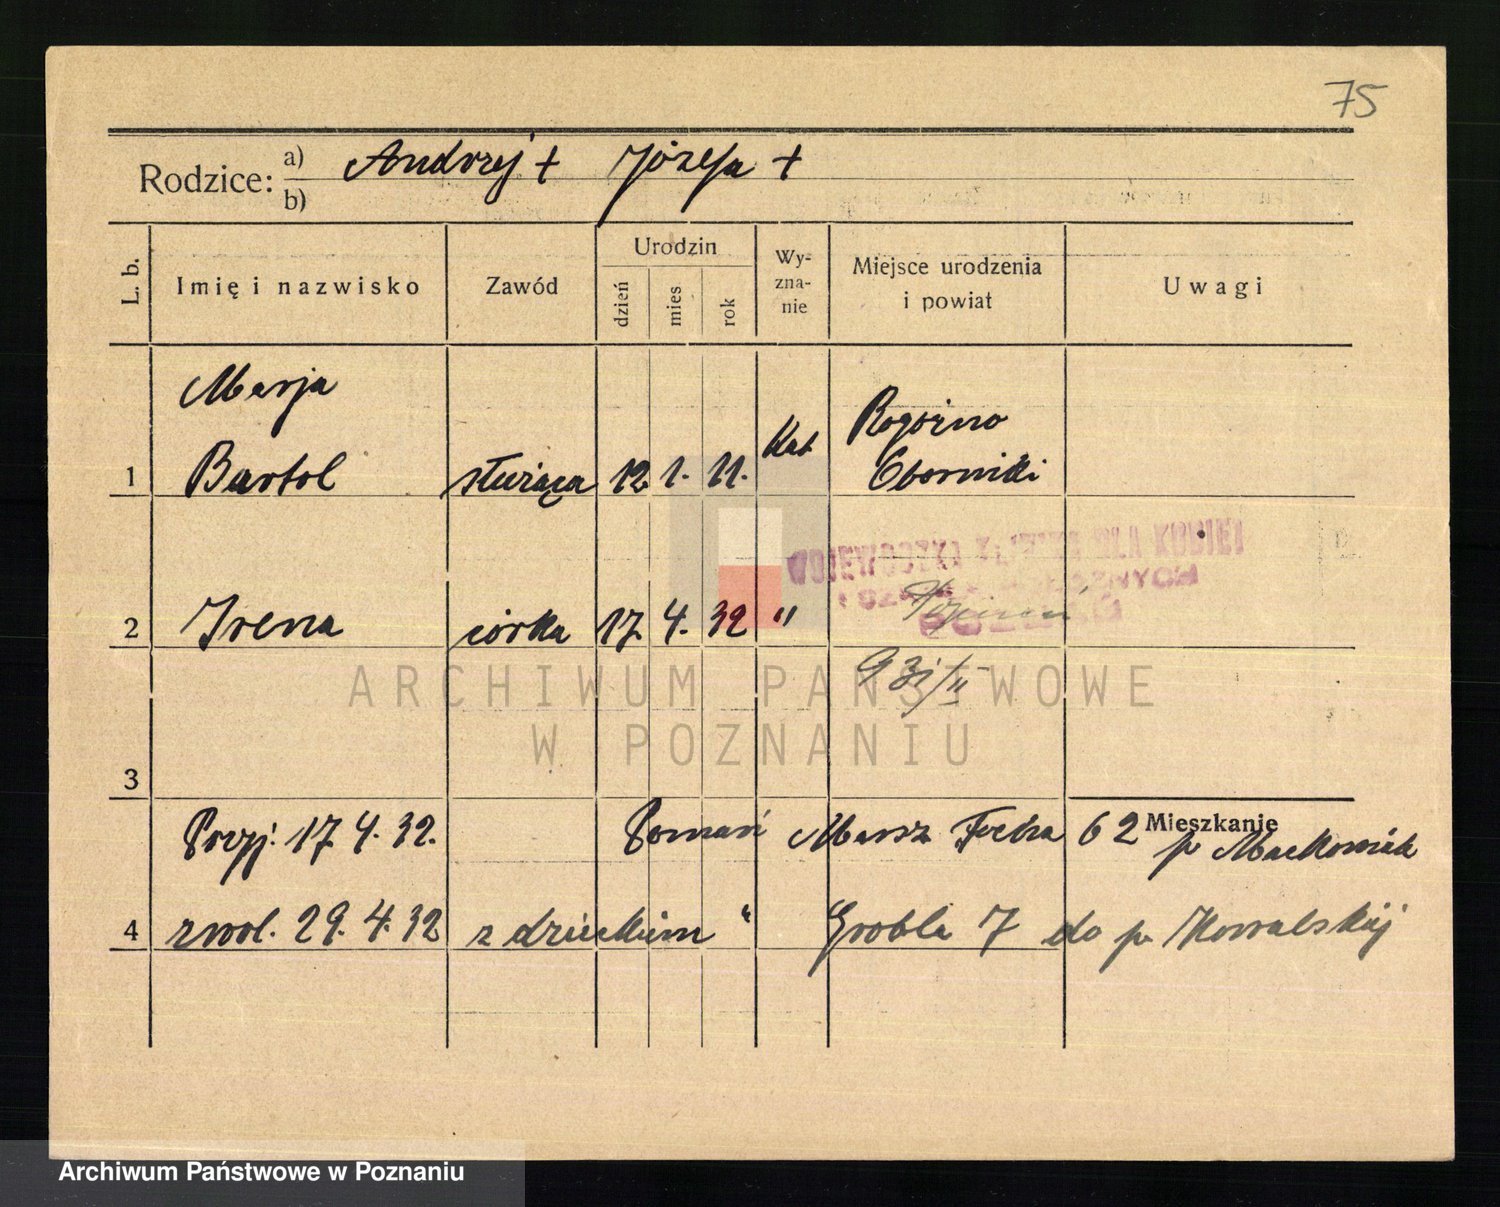 75
Rodzice: a) Andrzej + Józefa +
b)
L. b. Imię i nazwisko Zawód Urodzin dzień mies rok Wyzna-nie Miejsce urodzenia i powiat Uwagi
Marja
Bartol
1 służąca 12 1. 11. Kat Rogoźno
Oborniki
WOJEWÓDZKA KLINIKA DLA KOBIET
2 Irena córka 17. 4. 32 " Poznań
ARCHIWUM PAŃSTWOWE
W POZNANIU
3
Mieszkanie
Przyj. 17. 4. 32. Poznań Marsz Focha 62 p Maćkowiak
4 zwol. 29. 4. 32 z dzieckiem " Grobla 7 do p. Kowalskiej
Archiwum Państwowe w Poznaniu